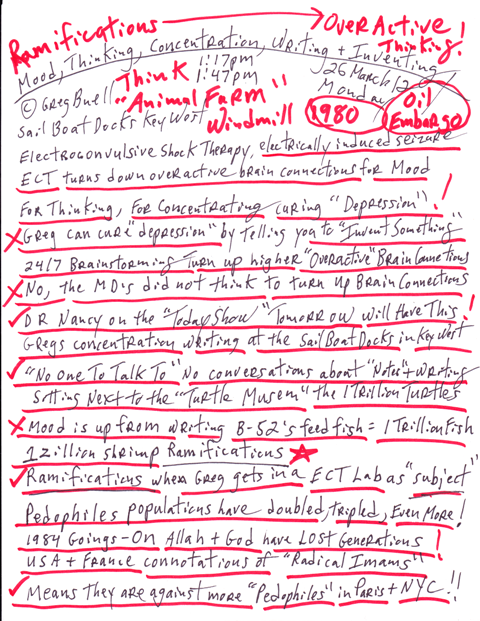 Ramifications → OverActive!
Mood, Thinking, Concentration, Writing + Inventing Thinking!
1:17pm 26 March 12
Think 1:47pm Monday
© Greg Buell "Animal Farm" 1980 Oil
Sail Boat Docks Key West Windmill Embargo
Electroconvulsive Shock Therapy, electrically induced seizure
ECT turns down overactive brain connections for Mood
For Thinking, For Concentrating curing "Depression"!
X Greg can cure "depression" by telling you to "Invent Something"
24/7 Brainstorming Turn up higher "Overactive" Brain Connections
X No, the MD's did not think to turn up Brain Connections
✓ DR Nancy on the "Today Show" "Tomorrow will Have This!
Gregs concentration writing at the Sail Boat Docks in Key West
✓ "No One To Talk To" No conversations about "Notes" + writing
Sitting Next to the "Turtle Musem" the 1 Trillion Turtles
X Mood is up from writing B-52's feed fish = 1 Trillion Fish
1 Zillion shrimp Ramifications ★
✓ Ramifications when Greg gets in a ECT Lab as "subject"
Pedophiles populations have doubled, tripled, Even More!
1984 Goings-On Allah + God have LOST Generations!
USA + France connotations of "Radical Imams"
✓ Means they are against more "Pedophiles" in Paris + NYC!!